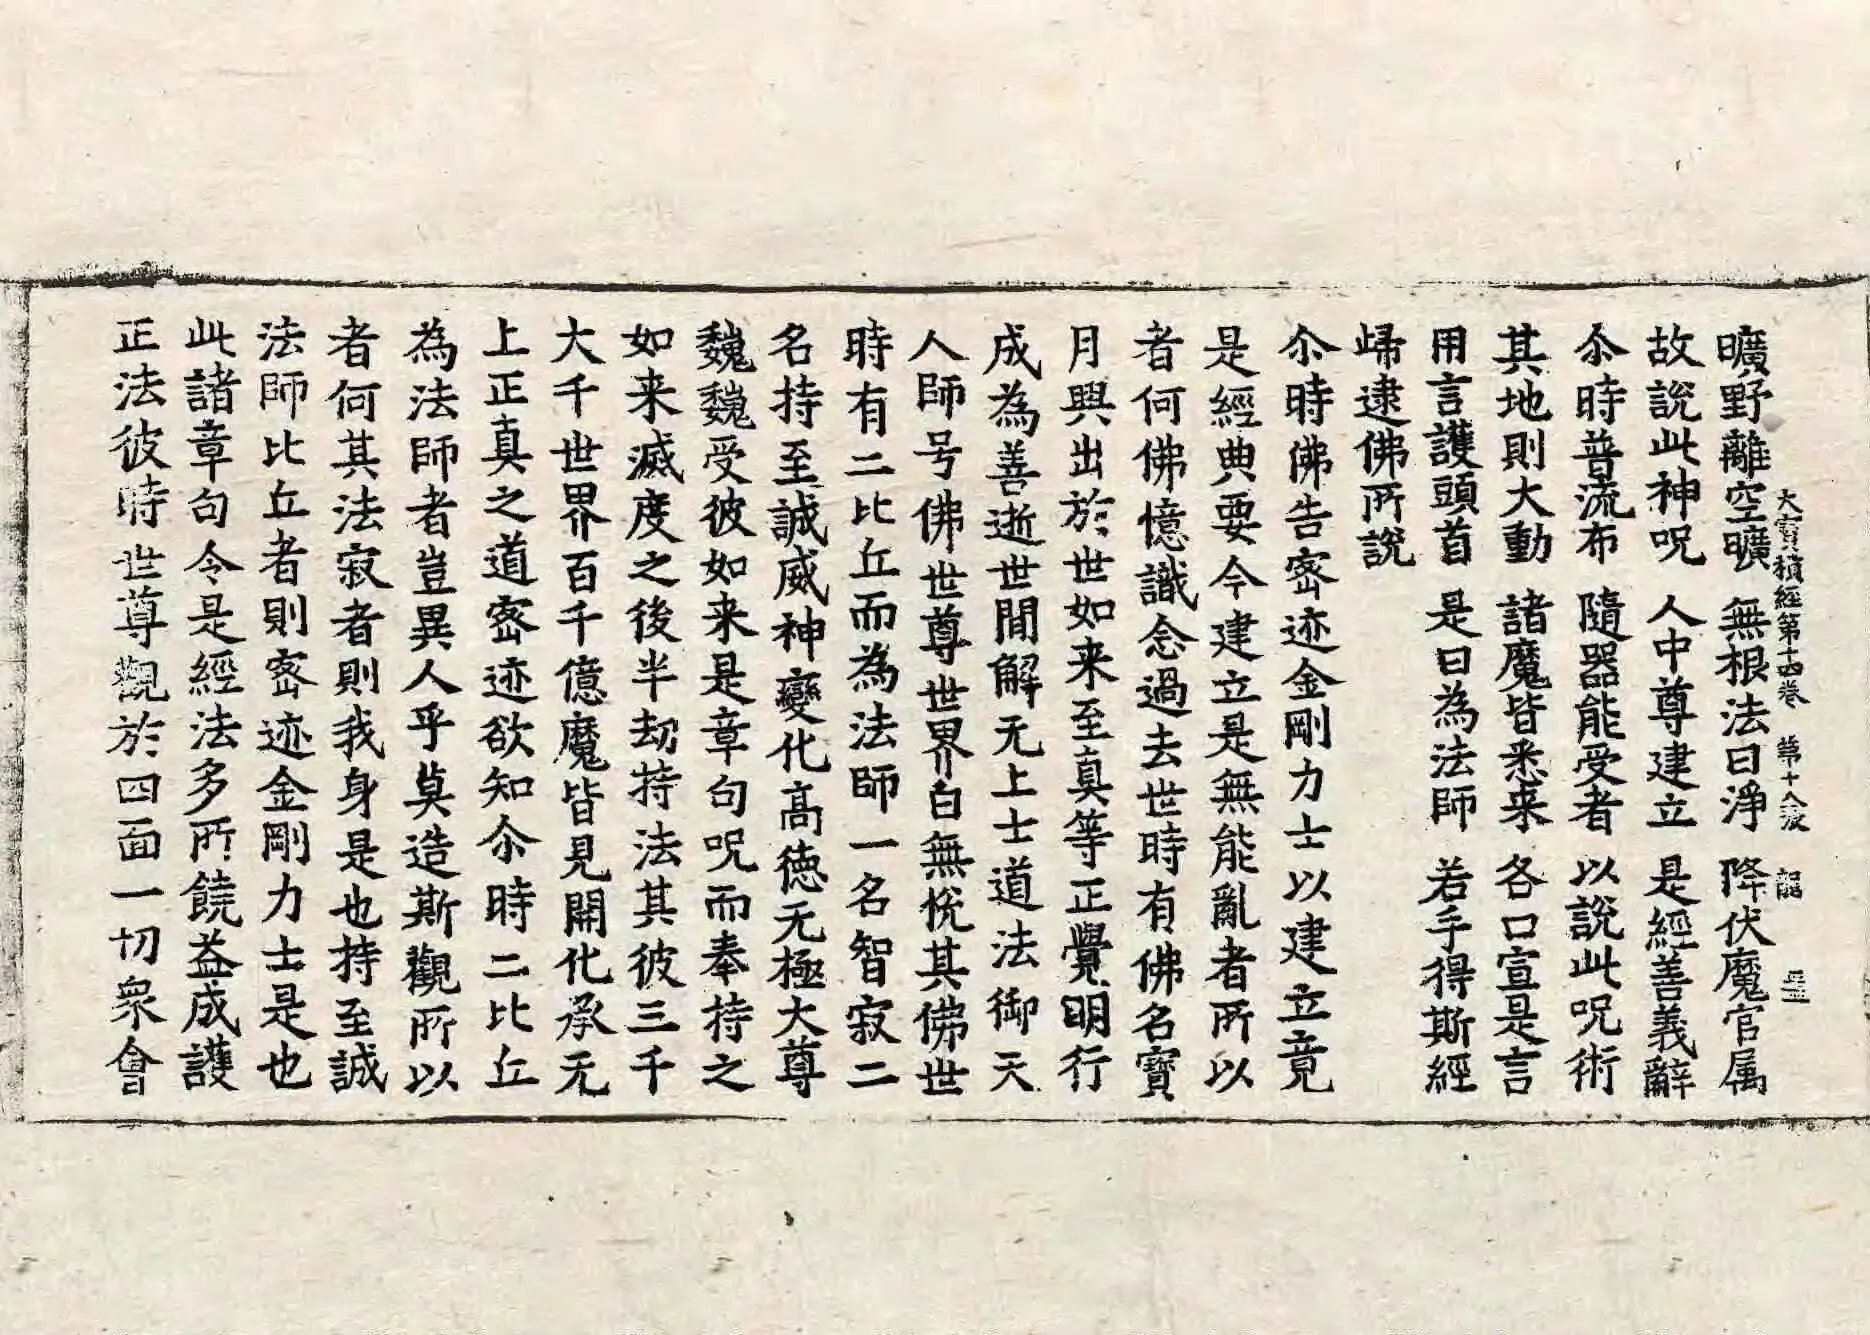 曠野離空曠　無根法曰淨　降伏魔官属
大寳積經第十四卷　第十八張　龍
故說此神呪　人中尊建立　是經善義辭
尒時普流布　隨器能受者　以說此呪術
其地則大動　諸魔皆悉来　各口宣是言
用言護頭首　是曰為法師　若手得斯經
歸逮佛所說
尒時佛告密迹金剛力士以建立竟
是經典要今建立是無能亂者所以
者何佛憶識念過去世時有佛名寳
月興出於世如来至真等正覺明行
成為善逝世間解无上士道法御天
人師号佛世尊世界曰無恱其佛世
時有二比丘而為法師一名智寂二
名持至誠威神變化高德无極大尊
魏魏受彼如来是章句呪而奉持之
如来滅度之後半劫持法其彼三千
大千世界百千億魔皆見開化承无
上正真之道密迹欲知尒時二比丘
為法師者豈異人乎莫造斯觀所以
者何其法寂者則我身是也持至誠
法師比丘者則密迹金剛力士是也
此諸章句令是經法多所饒益成護
正法彼時世尊觀於四面一切衆會